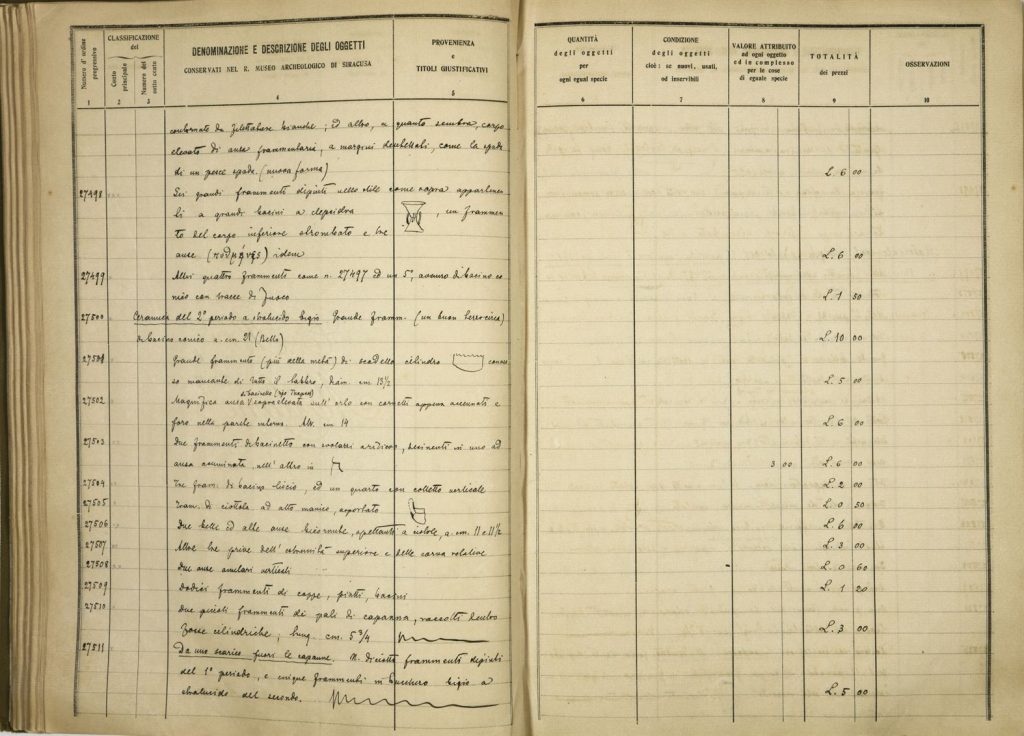 Numero d'ordine progressivo
CLASSIFICAZIONE
del
Conto principale
Numero del sotto conto
DENOMINAZIONE E DESCRIZIONE DEGLI OGGETTI
CONSERVATI NEL R. MUSEO ARCHEOLOGICO DI SIRACUSA
PROVENIENZA
e
TITOLI GIUSTIFICATIVI
1 2 3 4 5
bianche; ed altro, a quanto sembra, corpo
elevato di ansa frammentaria, a margini come la spada
di un pesce spada. (nuova forma)
27498 Sei grandi frammenti dipinti nello stile come sopra appartenen-
ti a grandi bacini a clepsidra , un frammen-
to del corpo inferiore strombato e tre
anse idem
27499 Altri quattro frammenti come n. 27497 ed un 5°, di bacino co-
nico con tracce di fuoco
27500 Ceramica del 2° periodo a stralucido bigio Grande framm. (un buon terzo circa)
di bacino conico a. cm 21 (Bello)
27501 Grande frammento (più della metà) di scodella cilindro
so mancante di tutto il labbro, diam. cm 13½
di bacinetto (tipo Thapsos)
27502 Magnifica ansa sopraelevata sull'orlo con cornetti appena accennati e
foro nella parete interna. Alt. cm 14
27503 Due frammenti di bacinetto con in uno ad
ansa nell'altro in
27504 Tre fram. di bacino liscio, ed un quarto con colletto verticale
27505 Fram. di ciottola ad alto manico, asportato
27506 Due belle ed alte anse bicornute, spettanti a ciotole, a. cm. 11 e 11½
27507 Altre tre prive dell'estremità superiore e delle corna relative
27508 Due anse anulari verticali
27509 Dodici frammenti di coppe, piatti, bacini
27510 Due piccoli frammenti di pali di capanna, raccolti dentro
fosse cilindriche, lung. cm. 5 3/4
27511 Da uno scarico fuori le capanne. N. diciotto frammenti dipinti
del 1° periodo, e cinque frammenti in bucchero bigio a
stralucido del secondo.
QUANTITÀ
degli oggetti
per
ogni egual specie
CONDIZIONE
degli oggetti
cioè: se nuovi, usati,
od inservibili
VALORE ATTRIBUITO
ad ogni oggetto
ed in complesso
per le cose
di eguale specie
TOTALITÀ
dei prezzi
OSSERVAZIONI
6 7 8 9 10
L. 6 00
L. 6 00
L. 1 50
L. 10 00
L. 5 00
L. 6 00
3 00 L. 6 00
L. 2 00
L. 0 50
L. 6 00
L. 3 00
L. 0 60
L. 1 20
L. 3 00
L. 5 00